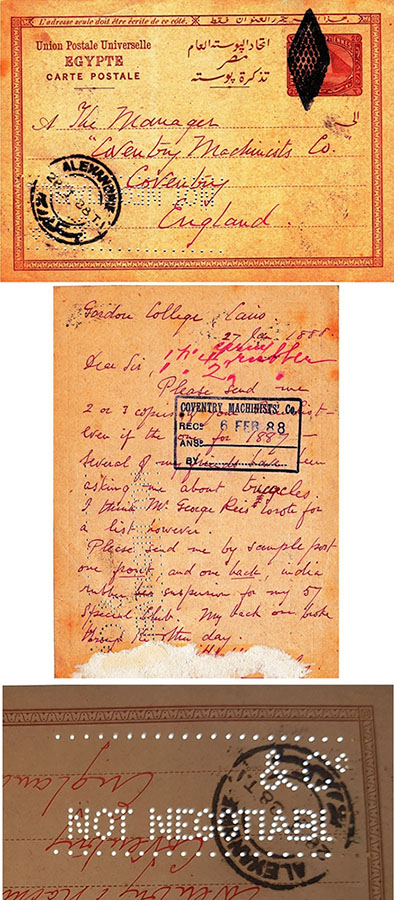 L'adresse seule doit être écrite de ce côté.
Union Postale Universelle
EGYPTE
CARTE POSTALE
اتحاد البوستة العام
مصر
تذكرة بوستة
الى
The Manager
Coventry Machinists Co.
Coventry
England
Gordon College, Cairo.
27 Jan 1888
rubber
Dear Sir,
Please send me
2 or 3 copies of your list
even if the one for 1887
COVENTRY MACHINISTS' Co.
REC^D 6 FEB 88
ANS^D
BY
several of my friends have been
asking me about tricycles.
I think Mr George wrote for
a list however.
Please send me by sample post
one front, and one back, india
rubber suspension for my 57
Special Club. My back one broke
through the other day.
NOT NEGOTIABL